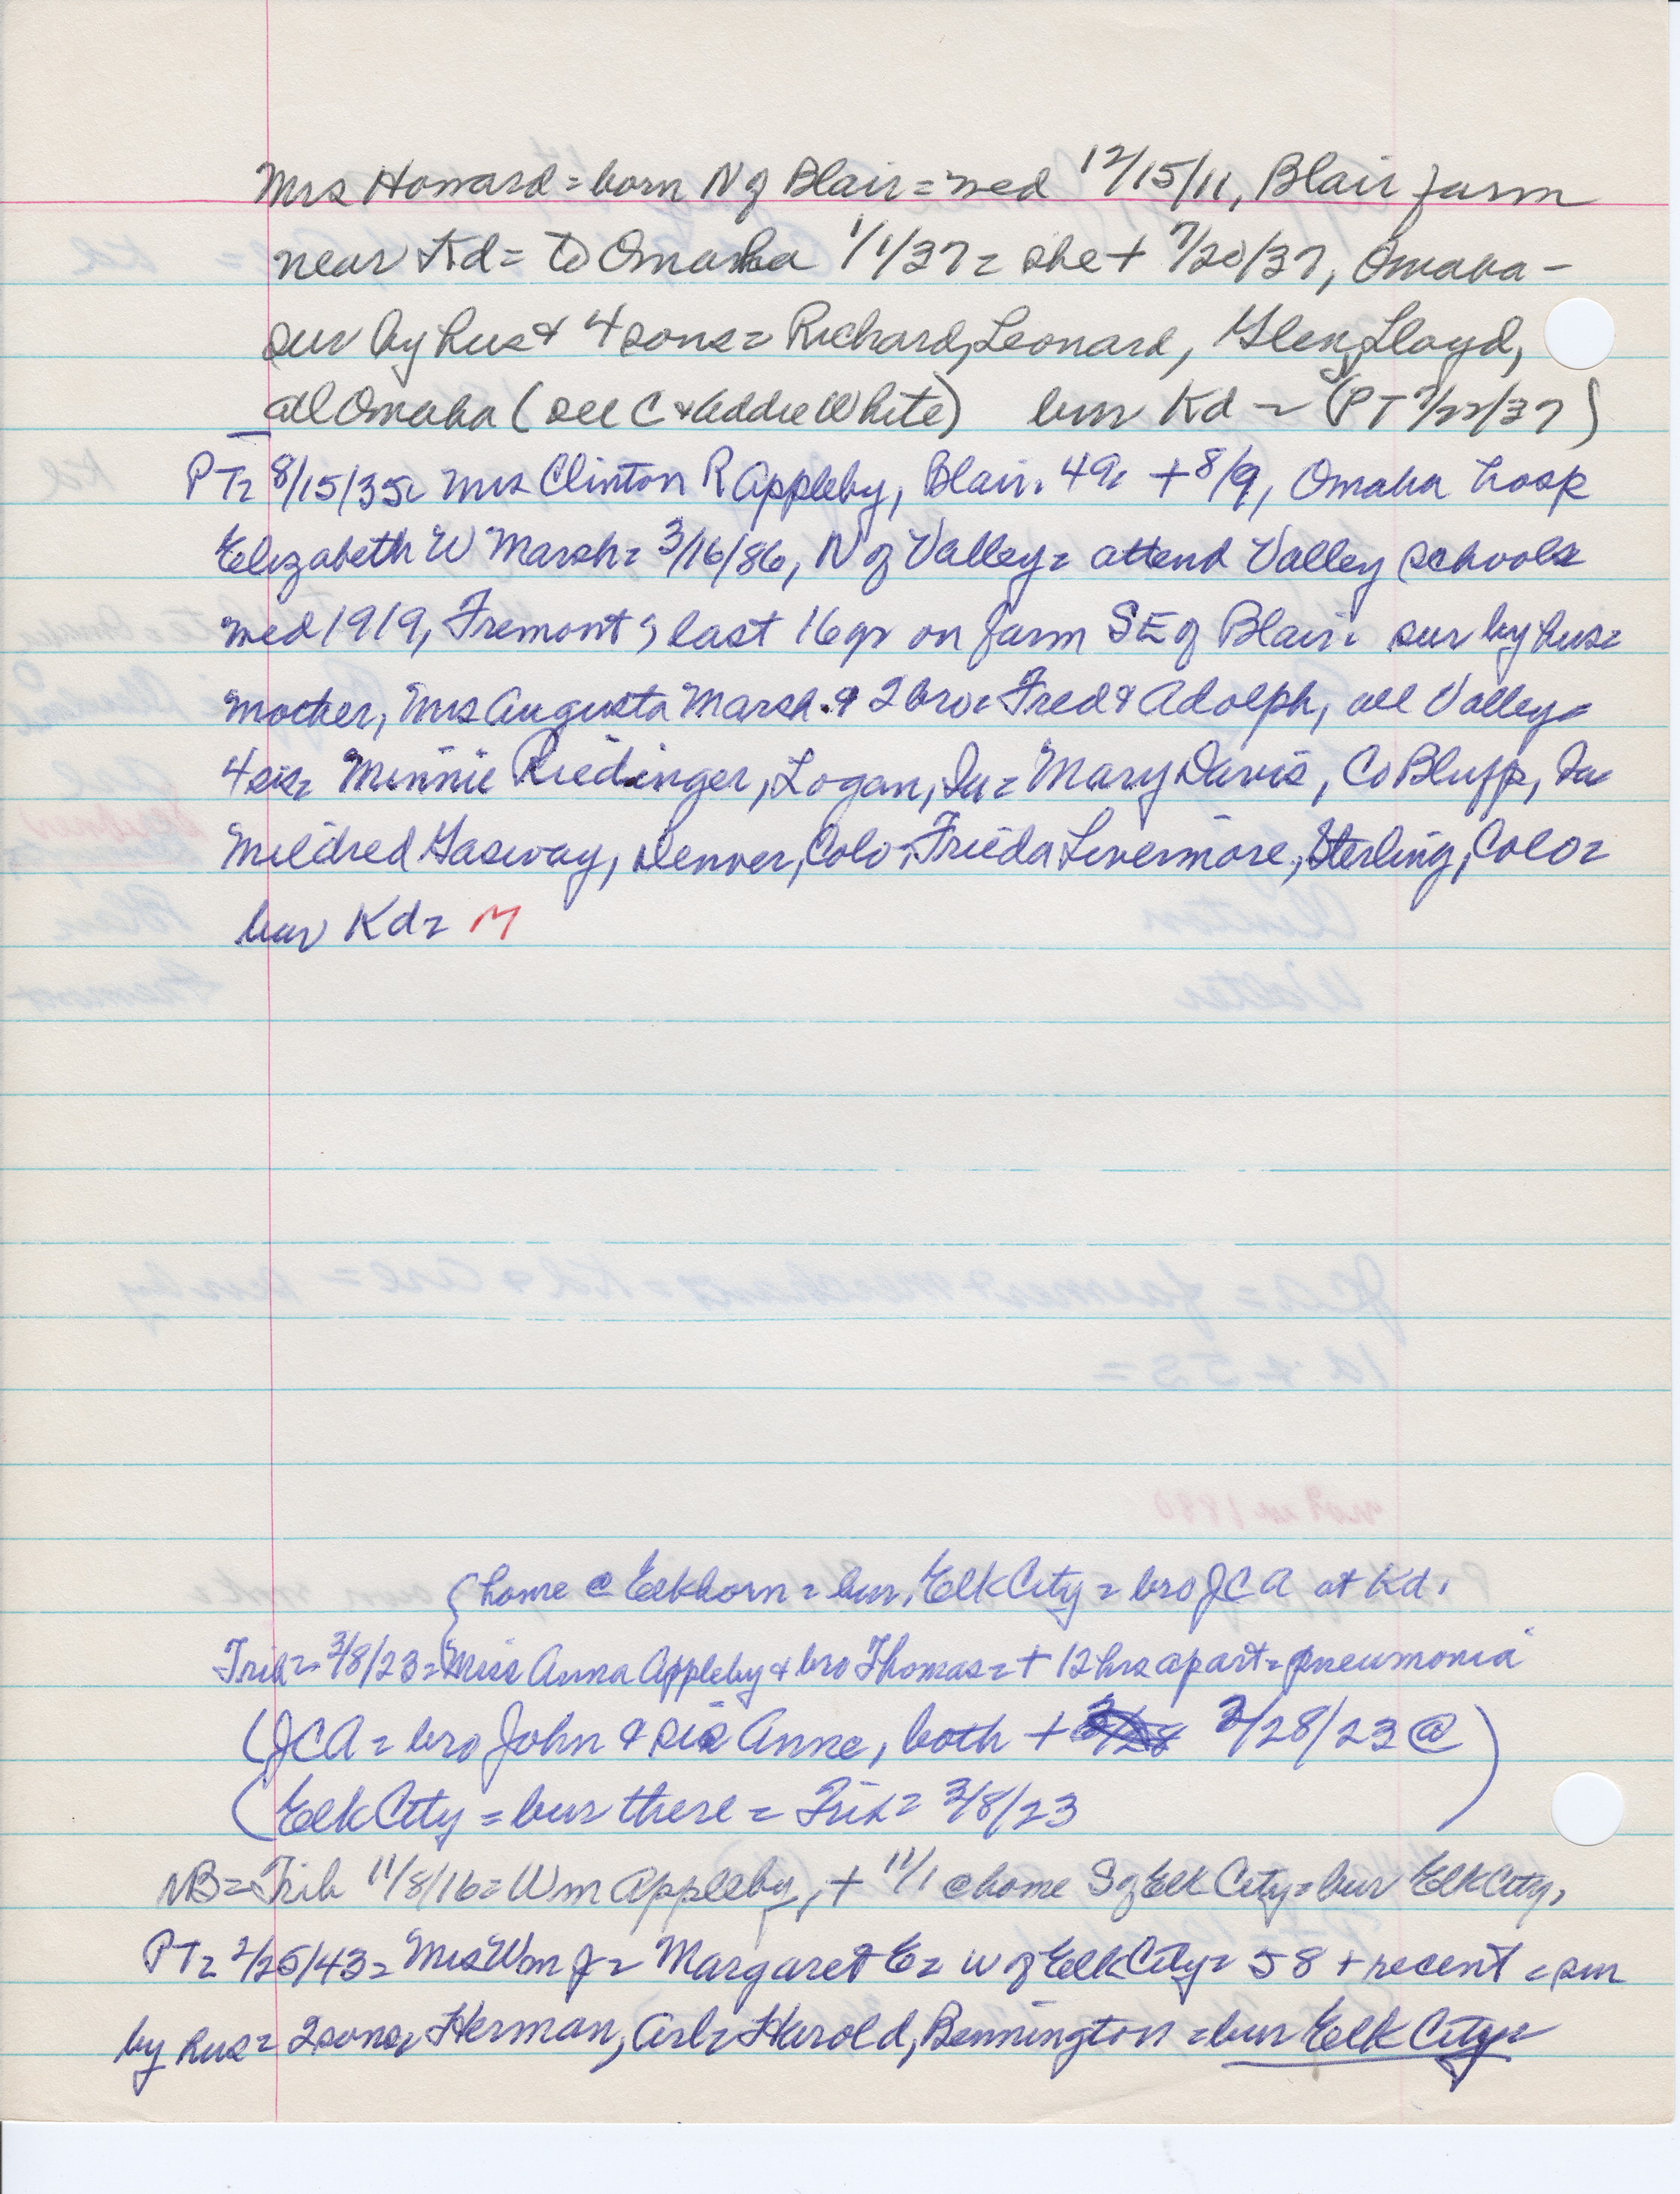 Mrs Howard = born N of Blair = med 12/15/11, Blair farm
near Kd = to Omaha 1/1/37 = she + 7/20/37, Omaha -
sur by hus & 4 sons = Richard, Leonard, Glen, Lloyd,
all Omaha (see C & Addie White) bur Kd = (PT 7/22/37)
PT = 8/15/35 = Mrs Clinton R Appleby, Blair. 49 = + 8/9, Omaha hosp
Elizabeth W Marsh = 3/16/86, N of Valley = attend Valley schools
med 1919, Fremont; last 16 yr on farm SE of Blair = sur by hus =
mother, Mrs Augusta Marsh & 2 bro = Fred & Adolph, all Valley =
4 sis = Minnie Riedinger, Logan, Ia = Mary Davis, Co Bluffs, Ia
Mildred Gasway, Denver, Colo = Frieda Livermore, Sterling, Colo =
bur Kd = M
{home @ Elkhorn = bur, Elk City = bro JCA at Kd.
Trib = 3/8/23 = Miss Anna Appleby & bro Thomas = + 12 hrs apart = pneumonia
(JCA = bro John & sis Anne, both + 2/28/23 @
Elk City = bur there = Trib = 3/8/23)
NB = Trib 11/8/16 = Wm Appleby, + 11/1 @ home S of Elk City = bur Elk City,
PT = 2/25/43 = Mrs Wm J = Margaret E = w of Elk City = 58 + recent = sur
by hus = 2 sons, Herman, Arl = Harold, Bennington = bur Elk City =